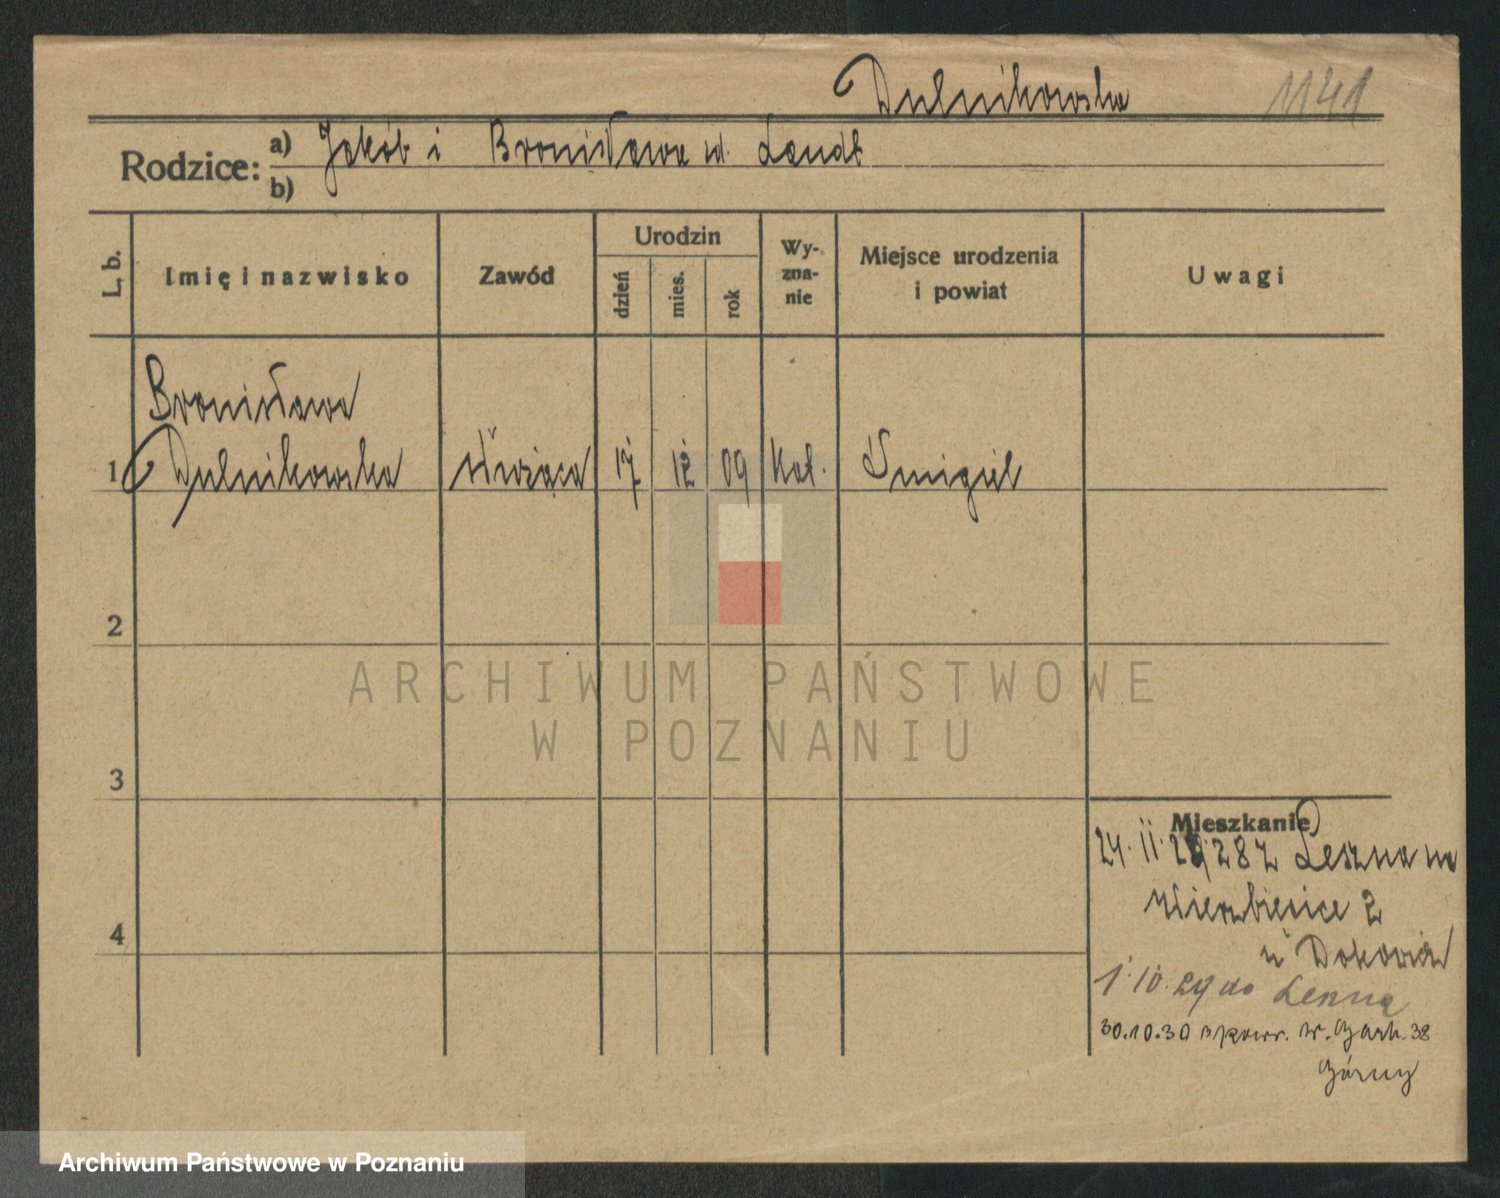 Dulnikowska 1141
Rodzice: a) Jakób i Bronisława ud. Landt
b)
L. b.
Imię i nazwisko
Zawód
Urodzin
dzień
mies.
rok
Wy-
zna-
nie
Miejsce urodzenia
i powiat
Uwagi
Bronisława
1 Dulnikowska służąca 17 12 09 kat. Śmigiel
2
3
4
Mieszkanie
24. II. 28 z Leszna na
Wierzbięcice 2
u
1. 10. 29 do Leszna
30.10.30 W. Garb. 38
Górny
ARCHIWUM PAŃSTWOWE
W POZNANIU
Archiwum Państwowe w Poznaniu